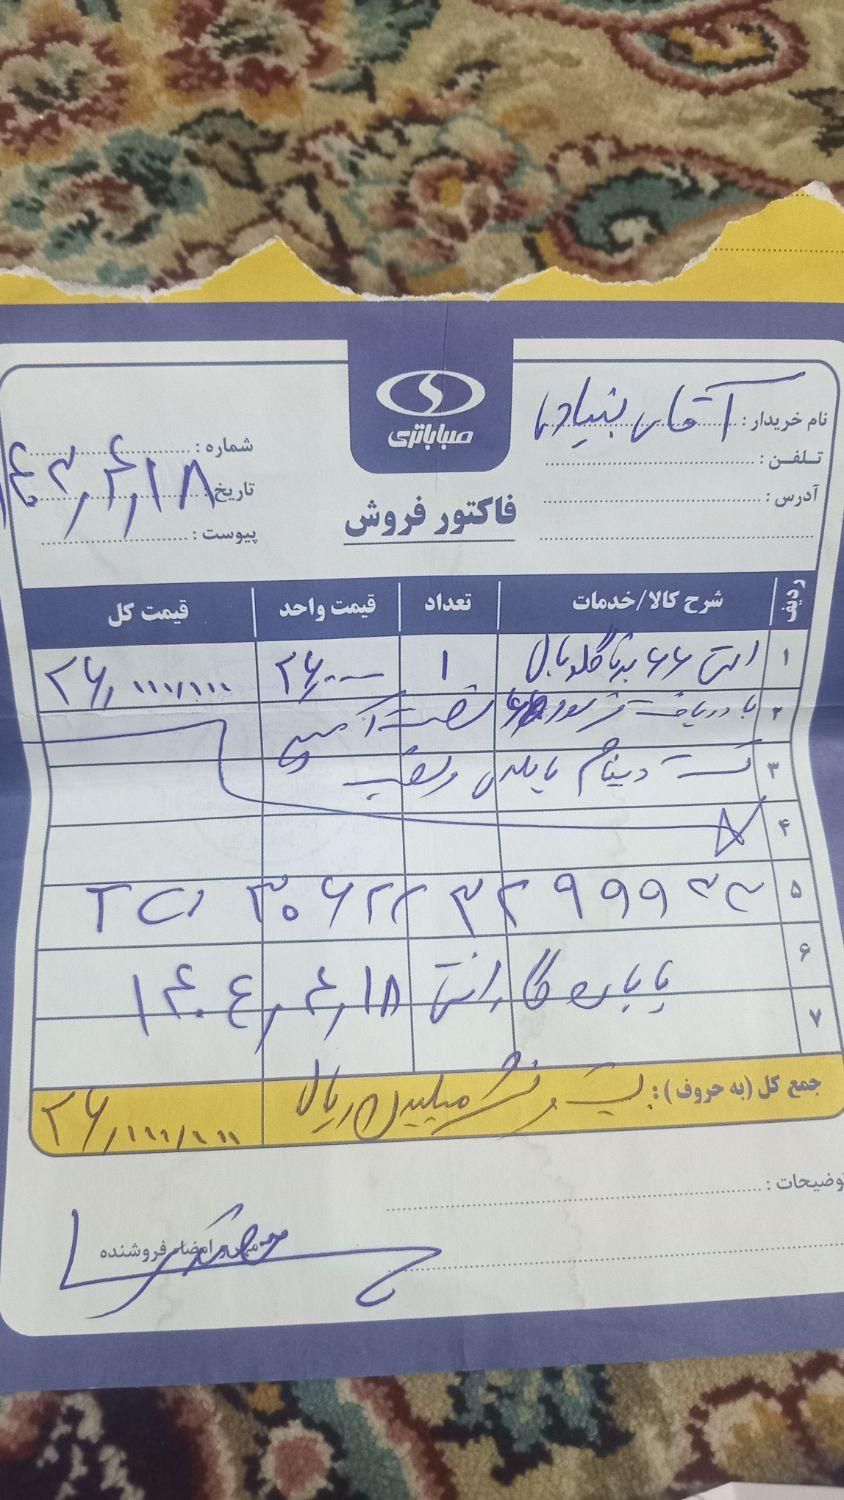 صباباتری
نام خریدار : آقای بنیادی
تلفن :
آدرس :
شماره :
تاریخ ۱۴۰۳٫۴٫۱۸
پیوست :
فاکتور فروش
ردیف شرح کالا/خدمات تعداد قیمت واحد قیمت کل
۱ ۶۶ برنا گلوبال ۱ ۲۶٫۰۰۰ ۲۶٫۰۰۰٫۰۰۰
۲ با دریافت فرسوده
۳ تست دینام
۴
۵ TC۱ ۳۰۶۲۲ ۳۲۹۹۹
۶ پایان گارانتی ۱۴۰۴٫۴٫۱۸
۷
جمع کل (به حروف) : بیست و شش میلیون ریال ۲۶٫۰۰۰٫۰۰۰
توضیحات :
مهر و امضاء فروشنده